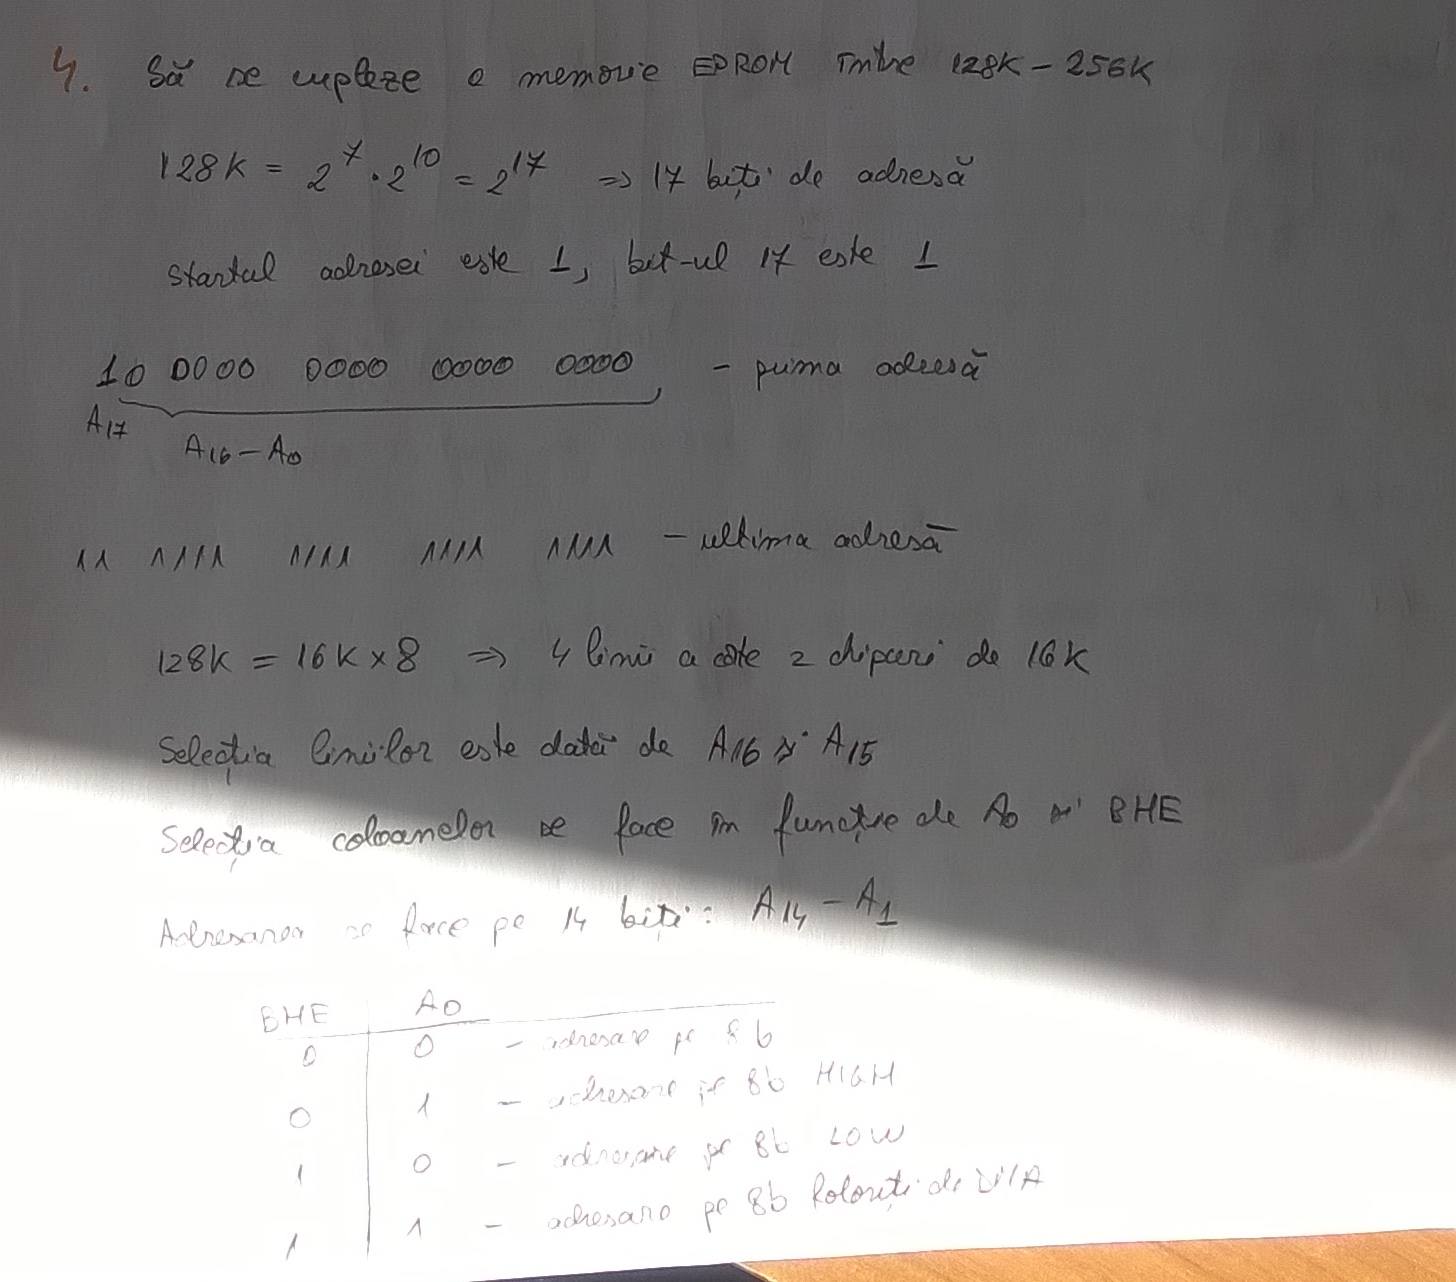 4. Să se cupleze o memorie EPROM între 128K - 256K
128K = 2^7 · 2^10 = 2^17 => 17 biți de adresă
startul adresei este 1, bit-ul 17 este 1
10 0000 0000 0000 0000 - prima adresă
A17
A16 - A0
11 1111 1111 1111 1111 - ultima adresă
128K = 16K x 8 => 4 linii a câte 2 chipuri de 16K
Selecția liniilor este dată de A16 și A15
Selecția coloanelor se face în funcție de A0 și BHE
Adresarea se face pe 14 biți: A14 - A1
BHE A0
0 0 - adresare pe 8b
0 1 - adresare pe 8b HIGH
1 0 - adresare pe 8b LOW
1 1 - adresare pe 8b folosiți de